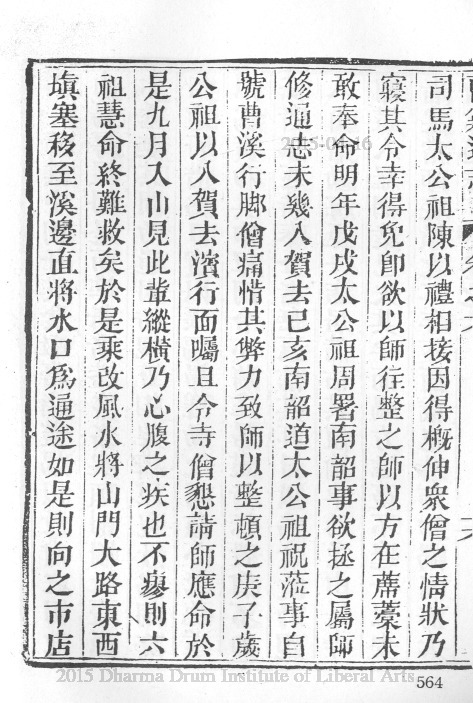 司馬太公祖陳以禮相接因得概伸衆僧之情狀乃
寢其令幸得免即欲以師往整之師以方在蓆藁未
敢奉命明年戊戌太公祖周署南韶事欲拯之屬師
修通志未幾入賀去己亥南韶道太公祖祝蒞事自
號曹溪行脚僧痛惜其弊力致師以整頓之庚子歲
公祖以入賀去濱行面囑且令寺僧懇請師應命於
是九月入山見此輩縱橫乃心腹之疾也不瘳則六
祖慧命終難救矣於是乘改風水將山門大路東西
填塞移至溪邊直將水口爲通途如是則向之市店
2015 Dharma Drum Institute of Liberal Arts
564